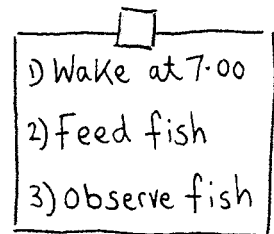 1) Wake at 7.00
2) Feed fish
3) Observe fish